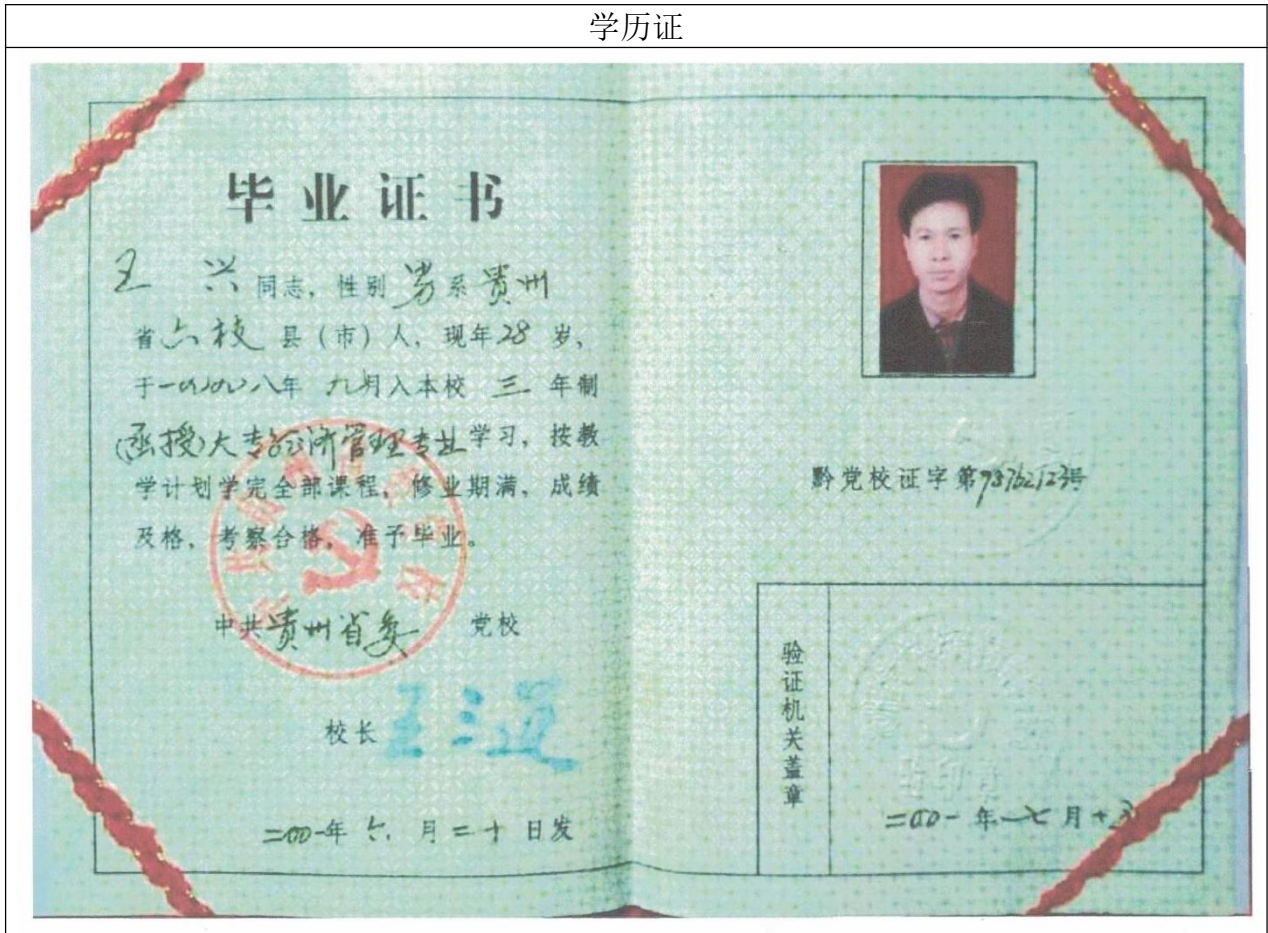 学历证
毕业证书
王 兴 同志，性别 男 系 贵州
省 六枝 县（市）人，现年 28 岁，
于一九九八年 九月入本校 三 年制
（函授）大专经济管理专业学习，按教
学计划学完全部课程，修业期满，成绩
及格，考察合格，准予毕业。
中共贵州省委 党校
校长 王三运
二00一年 六 月 二十 日发
黔党校证字第98762123号
验证机关盖章
二00一 年 七 月 十